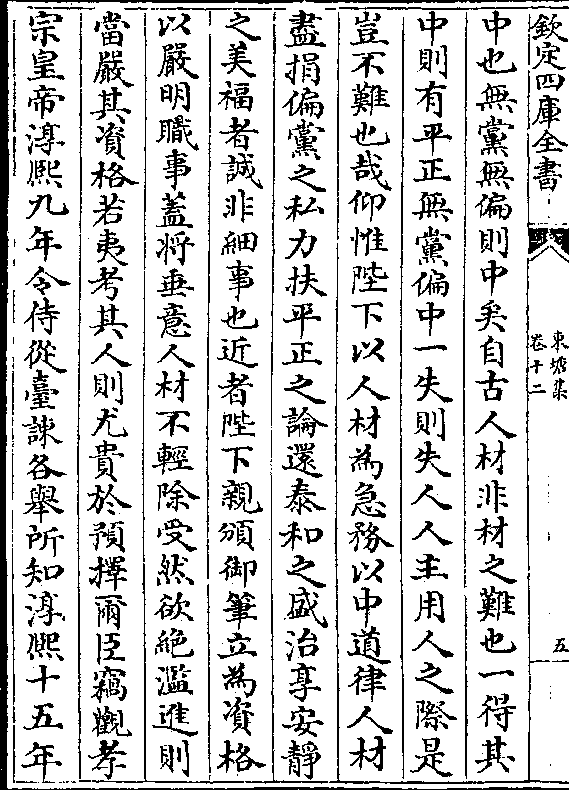 欽定四庫全書
東塘集
卷十二
五
中也無黨無偏則中矣自古人材非材之難也一得其
中則有平正無黨偏中一失則失人人主用人之際是
豈不難也哉仰惟陛下以人材為急務以中道律人材
盡捐偏黨之私力扶平正之論還泰和之盛治享安靜
之美福者誠非細事也近者陛下親頒御筆立為資格
以嚴明職事蓋將垂意人材不輕除受然欲絶濫進則
當嚴其資格若夷考其人則尤貴於預擇爾臣竊觀孝
宗皇帝淳熙九年令侍從臺諫各舉所知淳熙十五年